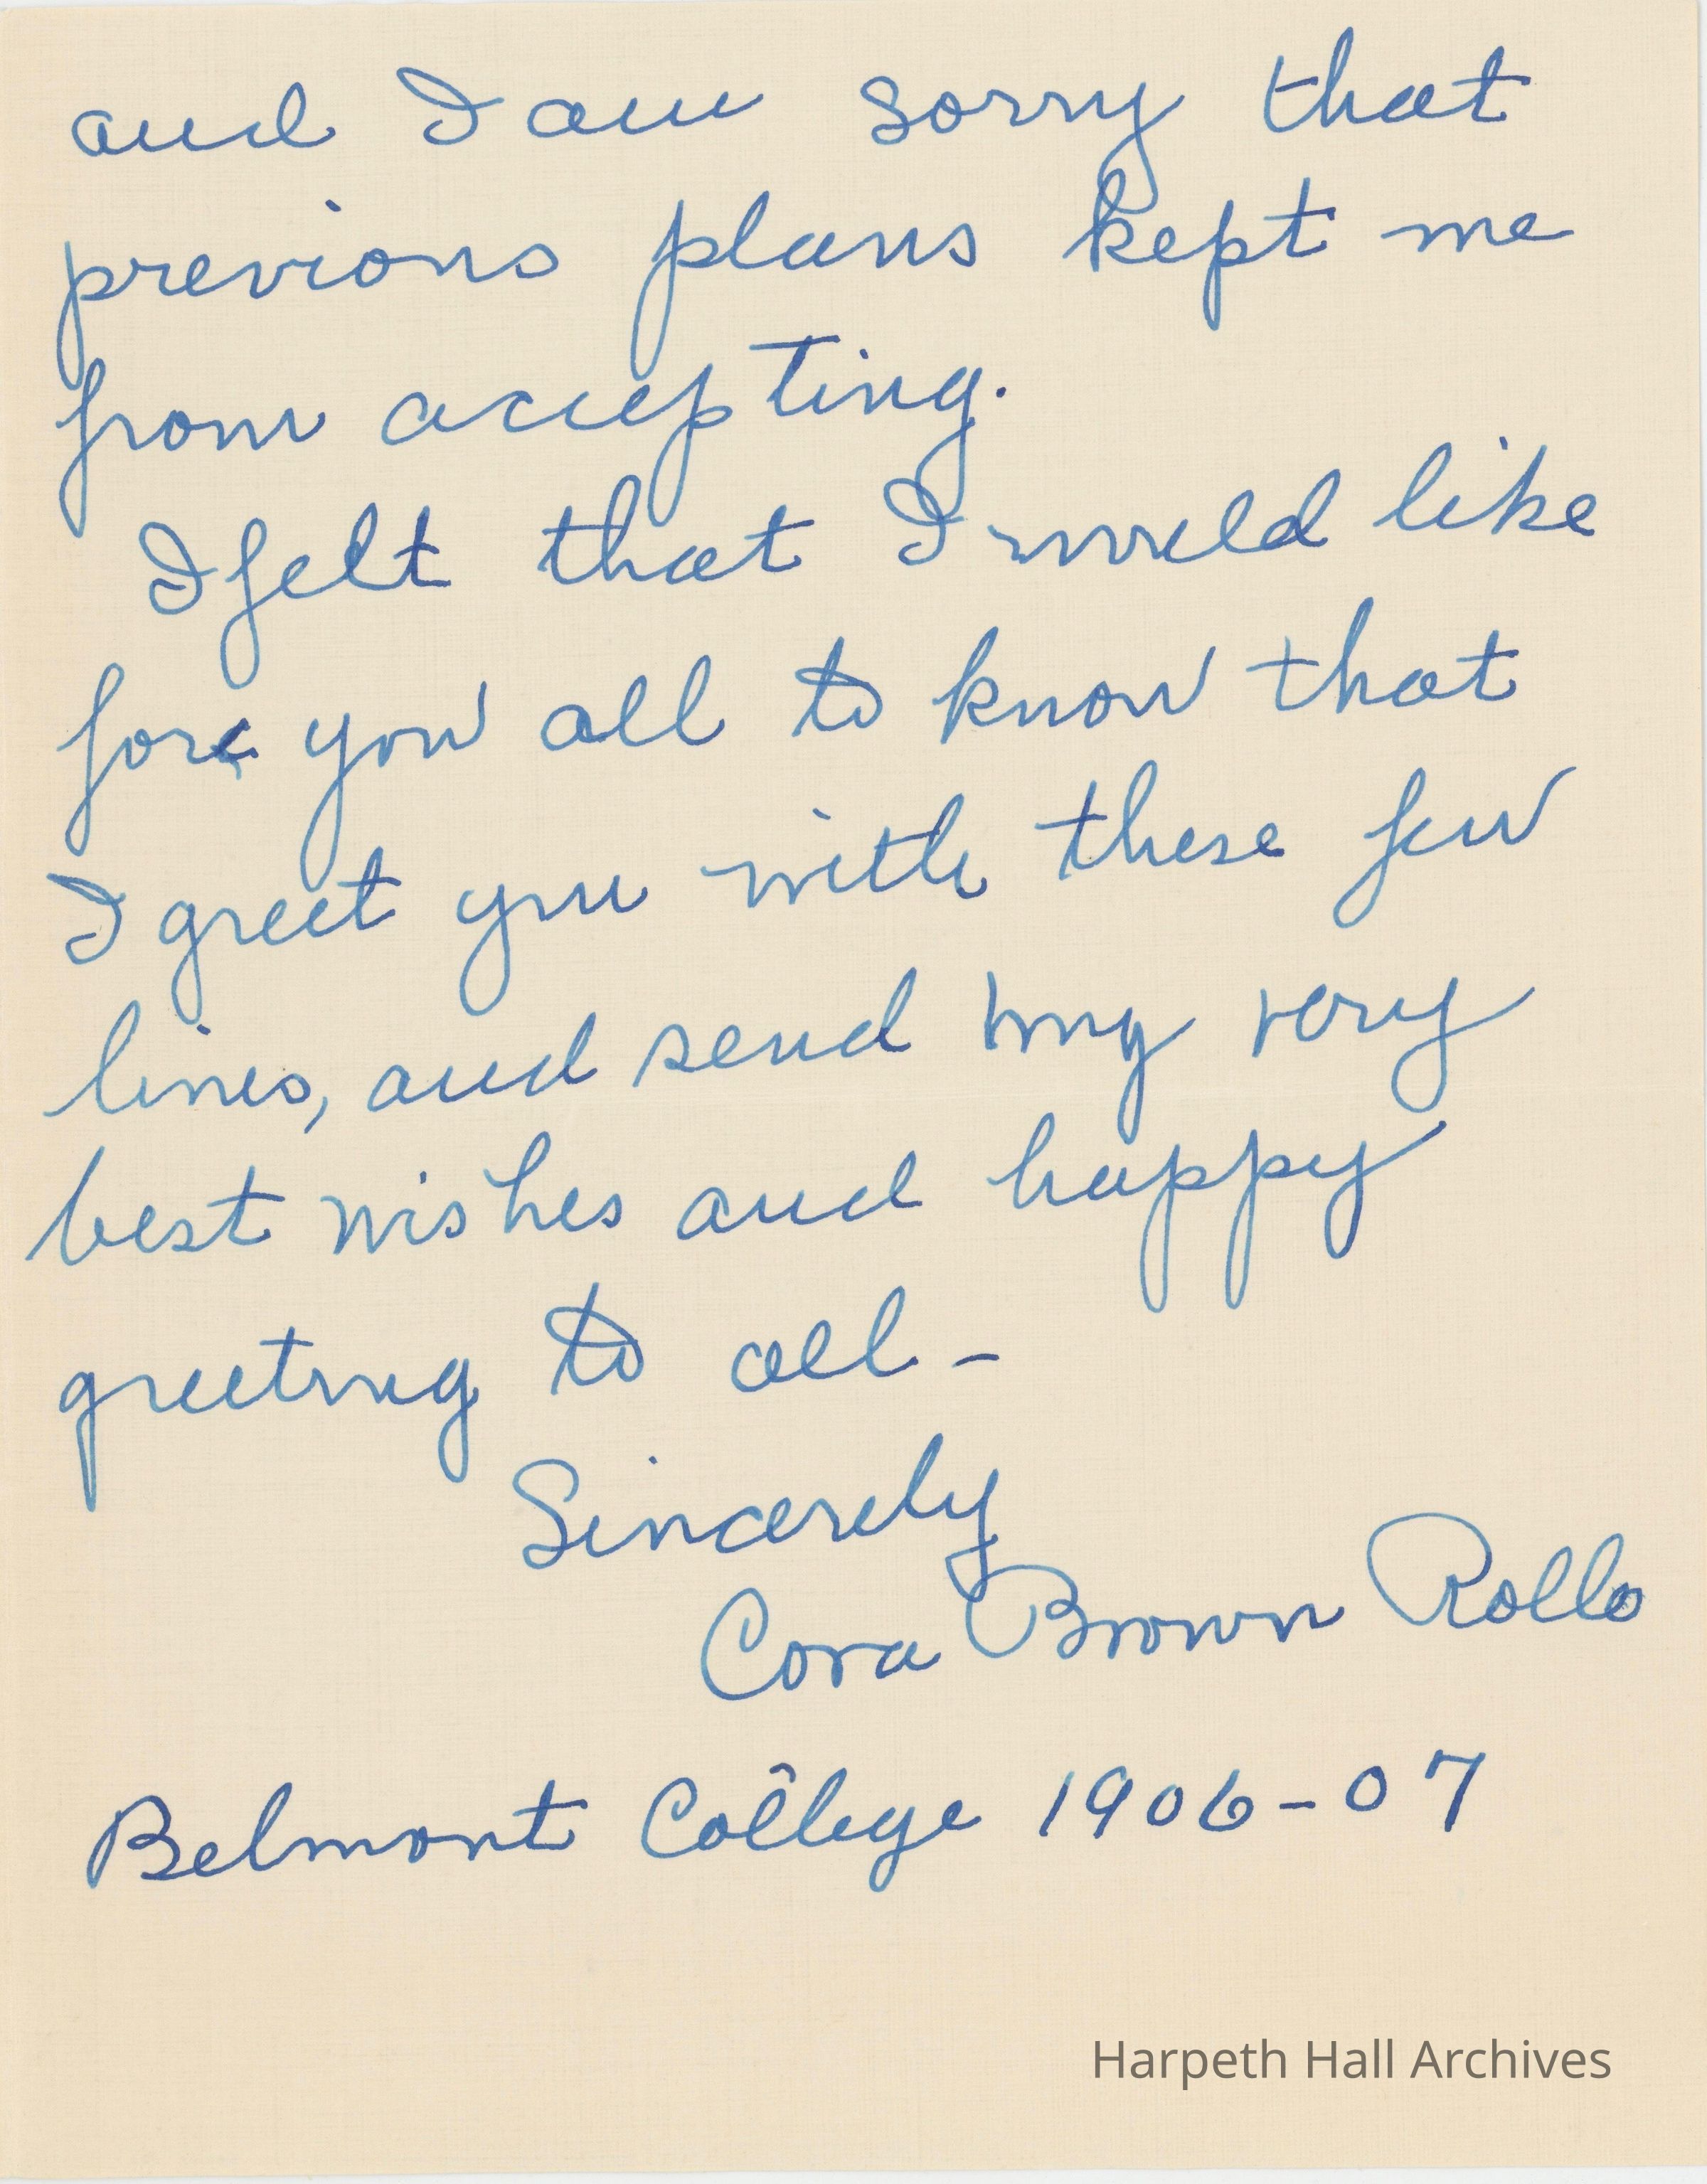 and I am sorry that
previous plans kept me
from accepting.
I felt that I would like
for you all to know that
I greet you with these few
lines, and send my very
best wishes and happy
greeting to all -
Sincerely
Cora Brown Rollo
Belmont College 1906-07
Harpeth Hall Archives